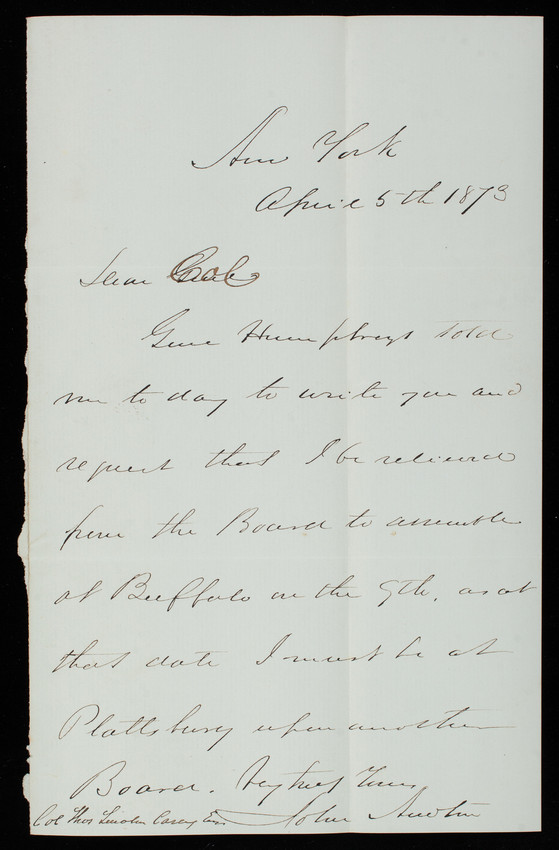 New York
April 5th 1873
Dear Col
Genl Humphreys told
me to day to write you and
request that I be relieved
from the Board to assemble
at Buffalo on the 9th, as at
that date I must be at
Plattsburg upon another
Board. Very truly Yours
John Newton
Col Thos Lincoln Casey Eng